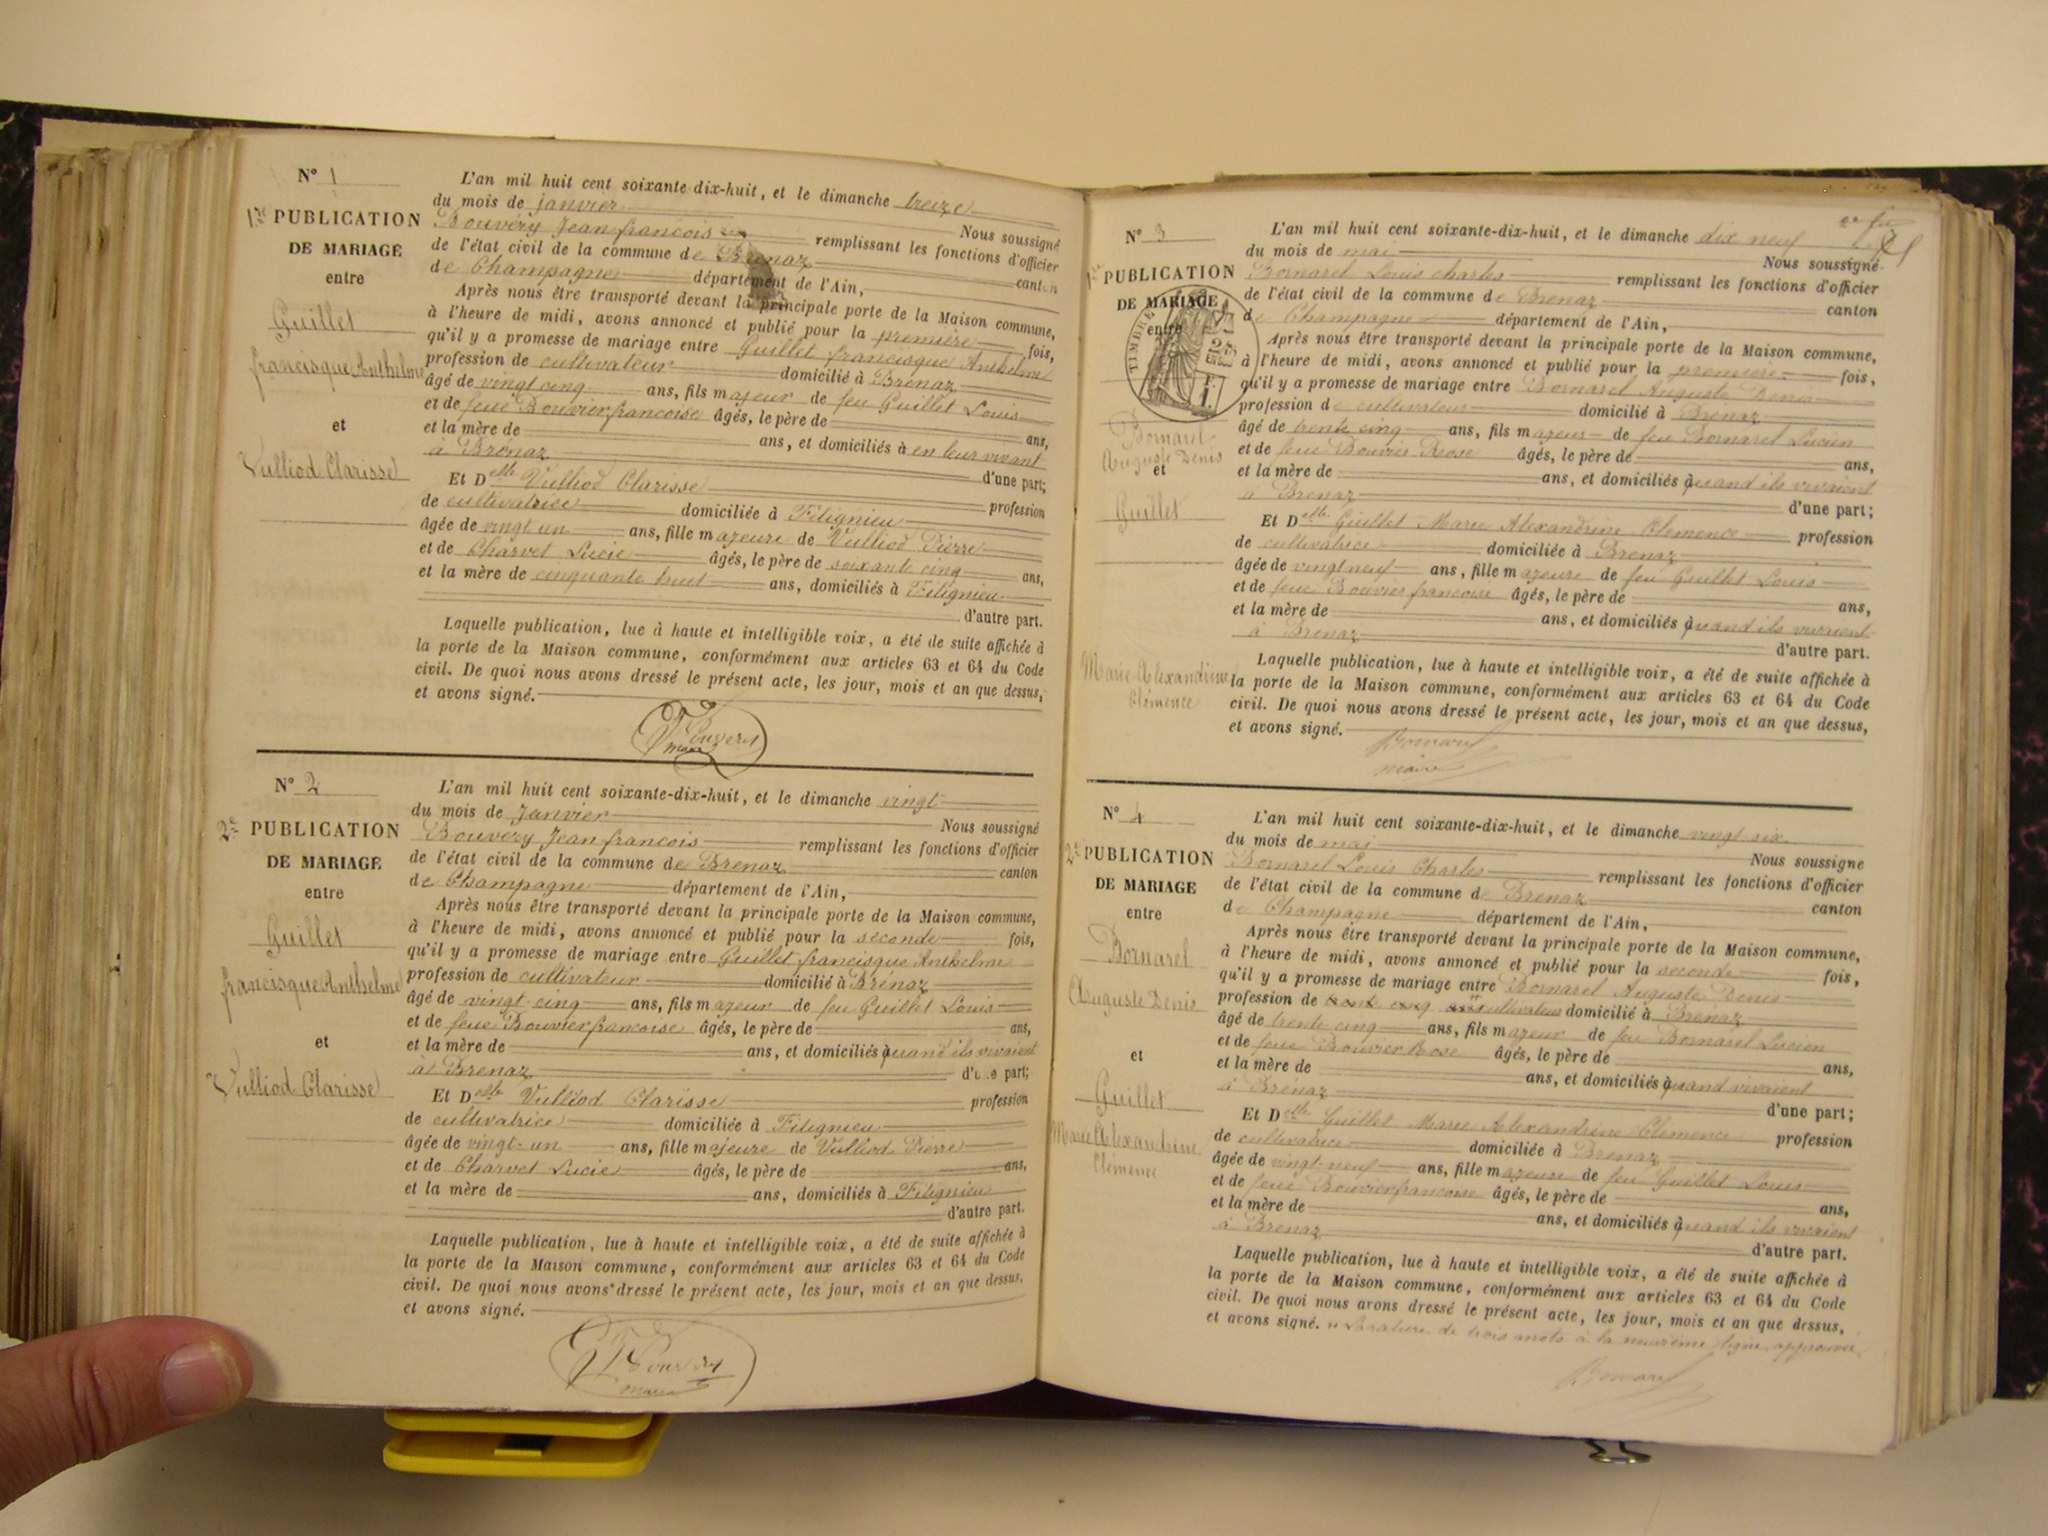 N° 1
1re PUBLICATION
DE MARIAGE
entre
Guillet
francisque Anthelme
et
Vulliod Clarisse
L'an mil huit cent soixante-dix-huit, et le dimanche treize
du mois de janvier Nous soussigné
Bouvéry Jean françois remplissant les fonctions d'officier
de l'état civil de la commune de Brenaz canton
de Champagne département de l'Ain,
Après nous être transporté devant la principale porte de la Maison commune,
à l'heure de midi, avons annoncé et publié pour la première fois,
qu'il y a promesse de mariage entre Guillet francisque Anthelme
profession de cultivateur domicilié à Brenaz
âgé de vingt cinq ans, fils majeur de feu Guillet Louis
et de feue Bouvier francoise âgés, le père de ans,
et la mère de ans, et domiciliés à en leur vivant
à Brenaz d'une part;
Et Delle Vulliod Clarisse profession
de cultivatrice domiciliée à Fitignieu
âgée de vingt un ans, fille majeure de Vulliod Pierre
et de Charvet Lucie âgés, le père de soixante cinq ans,
et la mère de cinquante huit ans, domiciliés à Fitignieu
d'autre part.
Laquelle publication, lue à haute et intelligible voix, a été de suite affichée à
la porte de la Maison commune, conformément aux articles 63 et 64 du Code
civil. De quoi nous avons dressé le présent acte, les jour, mois et an que dessus,
et avons signé.
Bouvery
maire
N° 2
2e PUBLICATION
DE MARIAGE
entre
Guillet
francisque Anthelme
et
Vulliod Clarisse
L'an mil huit cent soixante-dix-huit, et le dimanche vingt
du mois de Janvier Nous soussigné
Bouvéry Jean françois remplissant les fonctions d'officier
de l'état civil de la commune de Brenaz canton
de Champagne département de l'Ain,
Après nous être transporté devant la principale porte de la Maison commune,
à l'heure de midi, avons annoncé et publié pour la seconde fois,
qu'il y a promesse de mariage entre Guillet francisque Anthelme
profession de cultivateur domicilié à Brénaz
âgé de vingt-cinq ans, fils majeur de feu Guillet Louis
et de feue Bouvier francoise âgés, le père de ans,
et la mère de ans, et domiciliés à quand ils vivaient
à Brenaz d'une part;
Et Delle Vulliod Clarisse profession
de cultivatrice domiciliée à Fitignieu
âgée de vingt-un ans, fille majeure de Vulliod Pierre
et de Charvet Lucie âgés, le père de ans,
et la mère de ans, domiciliés à Fitignieu
d'autre part.
Laquelle publication, lue à haute et intelligible voix, a été de suite affichée à
la porte de la Maison commune, conformément aux articles 63 et 64 du Code
civil. De quoi nous avons dressé le présent acte, les jour, mois et an que dessus,
et avons signé.
Bouvery
maire
N° 3
1re PUBLICATION
DE MARIAGE
entre
TIMBRE
Bornarel
Auguste Denis
et
Guillet
Marie Alexandrine
Clémence
L'an mil huit cent soixante-dix-huit, et le dimanche dix neuf
du mois de mai Nous soussigné
Bornarel Louis charles remplissant les fonctions d'officier
de l'état civil de la commune de Brenaz canton
de Champagne département de l'Ain,
Après nous être transporté devant la principale porte de la Maison commune,
à l'heure de midi, avons annoncé et publié pour la premiere fois,
qu'il y a promesse de mariage entre Bornarel Auguste Denis
profession de cultivateur domicilié à Brenaz
âgé de trente cinq ans, fils majeur de feu Bornarel Lucien
et de feue Bouvier Rose âgés, le père de ans,
et la mère de ans, et domiciliés à quand ils vivaient
à Brenaz d'une part;
Et Delle Guillet Marie Alexandrine Clemence profession
de cultivatrice domiciliée à Brenaz
âgée de vingt neuf ans, fille majeure de feu Guillet Louis
et de feue Bouvier francoise âgés, le père de ans,
et la mère de ans, et domiciliés à quand ils vivaient
à Brenaz d'autre part.
Laquelle publication, lue à haute et intelligible voix, a été de suite affichée à
la porte de la Maison commune, conformément aux articles 63 et 64 du Code
civil. De quoi nous avons dressé le présent acte, les jour, mois et an que dessus,
et avons signé.
Bornarel
maire
N° 4
2e PUBLICATION
DE MARIAGE
entre
Bornarel
Auguste Denis
et
Guillet
Marie Alexandrine
Clémence
L'an mil huit cent soixante-dix-huit, et le dimanche vingt six
du mois de mai Nous soussigné
Bornarel Louis Charles remplissant les fonctions d'officier
de l'état civil de la commune de Brenaz canton
de Champagne département de l'Ain,
Après nous être transporté devant la principale porte de la Maison commune,
à l'heure de midi, avons annoncé et publié pour la seconde fois,
qu'il y a promesse de mariage entre Bornarel Auguste Denis
profession de cultivateur domicilié à Brenaz
âgé de trente cinq ans, fils majeur de feu Bornarel Lucien
et de feue Bouvier Rose âgés, le père de ans,
et la mère de ans, et domiciliés à quand vivaient
à Brénaz d'une part;
Et Delle Guillet Marie Alexandrine Clemence profession
de cultivatrice domiciliée à Brenaz
âgée de vingt-neuf ans, fille majeure de feu Guillet Louis
et de feue Bouvier francoise âgés, le père de ans,
et la mère de ans, et domiciliés à quand ils vivaient
à Brenaz d'autre part.
Laquelle publication, lue à haute et intelligible voix, a été de suite affichée à
la porte de la Maison commune, conformément aux articles 63 et 64 du Code
civil. De quoi nous avons dressé le présent acte, les jour, mois et an que dessus,
et avons signé. La rature de trois mots à la neuvième ligne approuvée
Bornarel